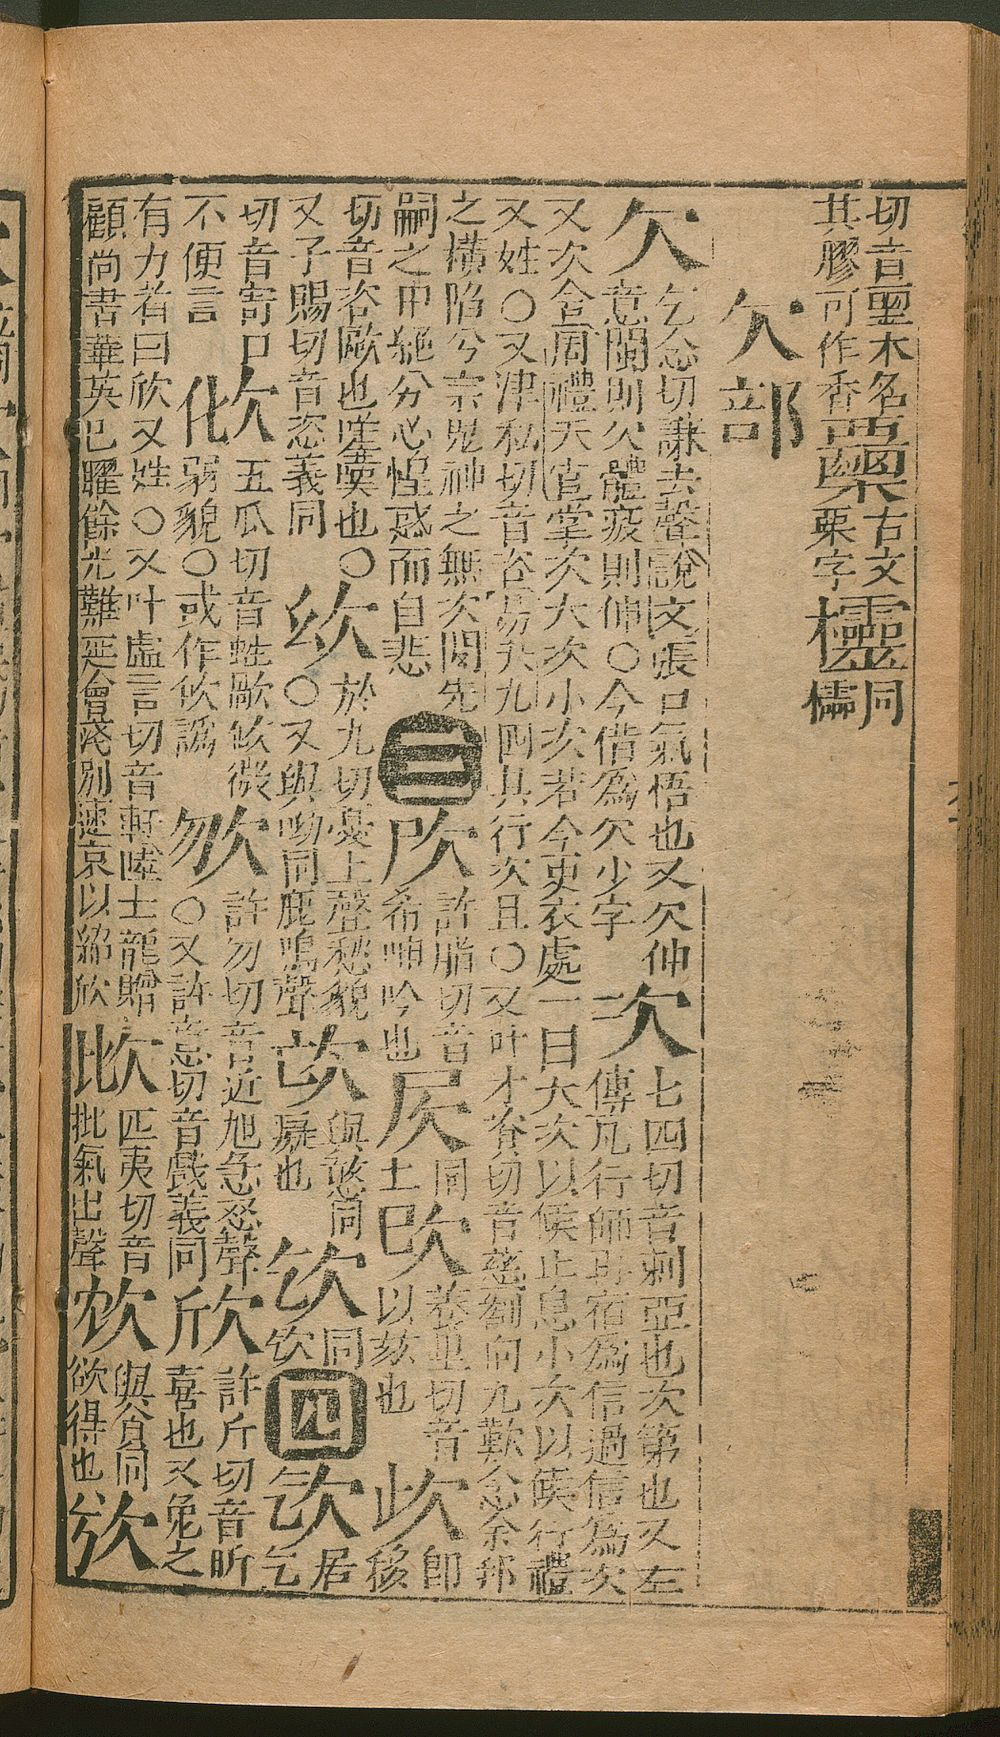 切音靈木名𣡷古文櫺同
其膠可作香 栗字 櫺
欠部
欠乞念切謙去聲說文張口氣悟也又欠伸次七四切音刺亞也次第也又左
意闌則欠體疲則伸○今借為欠少字二傳凡行師再宿為信過信為次
又次舍周禮天官掌次大次小次若今更衣處一曰大次以候止息小次以候行禮
又姓○又津私切音咨易夬九四其行次且○又叶才資切音慈劉向九歎念余邦
之橫陷兮宗鬼神之無次閔先三㕧許脂切音㞙同 㰻養里切音㰣即
嗣之中絕兮心惶惑而自悲 希呻吟也 土 以欬也 移
切音咨歐也嗟歎也○㰶於九切憂上聲愁貌 與憨同 同四欯居
又子賜切音恣義同 ○又與呦同鹿鳴聲 癡也 乞
切音寄口㰭五瓜切音蛙歐㰭微欻許勿切音近旭急忍聲欣許斤切音昕
不便言 弱貌○或作㰭譌 ○又許意切音戲義同 喜也又兔之
有力者曰欣又姓○又叶虛言切音軒陸士龍贈㰧匹夷切音 與貪同
顧尚書華英巳曜餘光難延會淺別速哀以紹欣 批氣出聲 欲得也